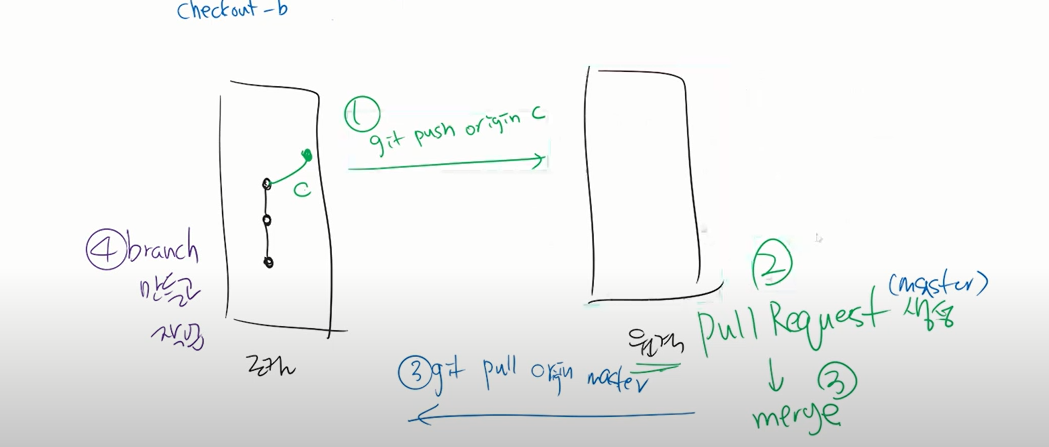 checkout -b
①
git push origin c
c
④ branch
만들고
작업
로컬
②
(master)
Pull Request 생성
원격
↓ ③
merge
③ git pull orgin master